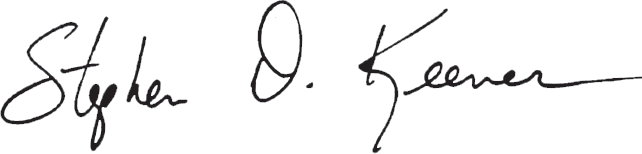 Stephen D. Keener